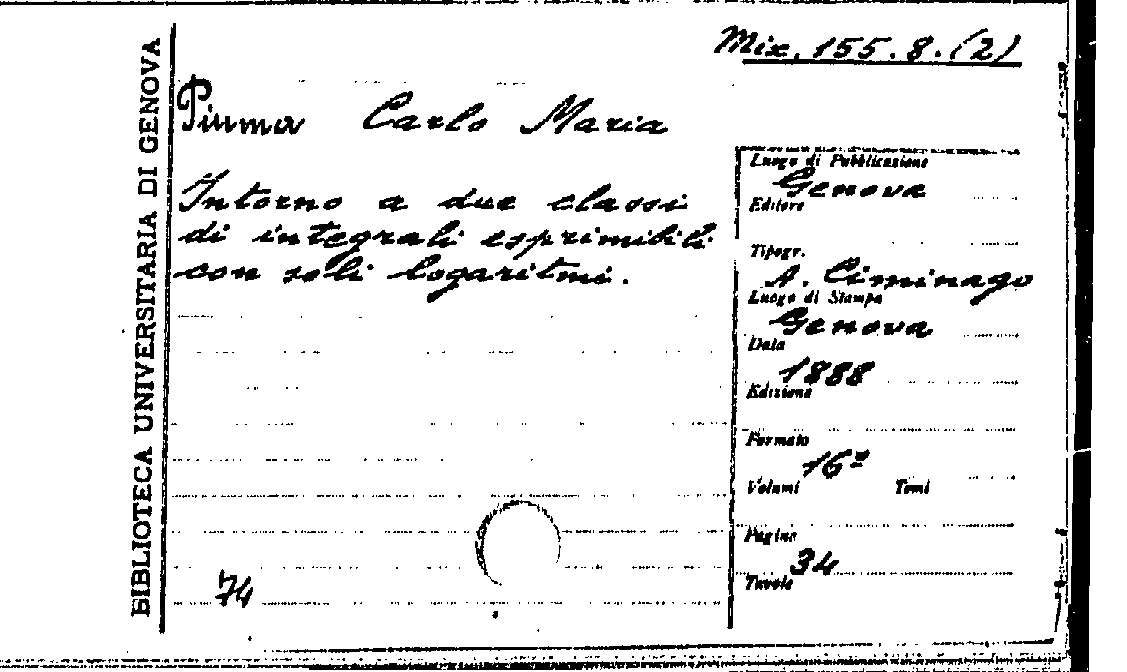 Mix. 155. 8. (2)
BIBLIOTECA UNIVERSITARIA DI GENOVA
Piuma Carlo Maria
Intorno a due classi
di integrali esprimibili
con soli logaritmi.
74
Luogo di Pubblicazione
Genova
Editore
Tipogr.
A. Ciminago
Luogo di Stampa
Genova
Data
1888
Edizione
Formato
16º
Volumi Tomi
Pagine
34
Tavole